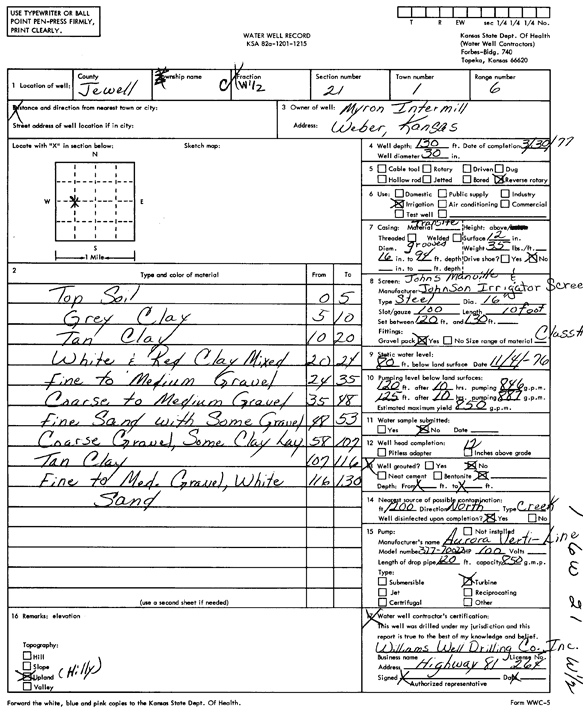 USE TYPEWRITER OR BALL
POINT PEN-PRESS FIRMLY,
PRINT CLEARLY.
WATER WELL RECORD
KSA 82a-1201-1215
T R EW sec 1/4 1/4 1/4 No.
Kansas State Dept. Of Health
(Water Well Contractors)
Forbes-Bldg. 740
Topeka, Kansas 66620
1 Location of well: County Jewell Township name Fraction C W1/2 Section number 21 Town number 1 Range number 6
Distance and direction from nearest town or city:
Street address of well location if in city:
3 Owner of well: Myron Intermill
Address: Weber, Kansas
Locate with "X" in section below: Sketch map:
N
W X E
S
1 Mile
4 Well depth: 130 ft. Date of completion 3/30/77
Well diameter 30 in.
5 Cable tool Rotary Driven Dug
Hollow rod Jetted Bored X Reverse rotary
6 Use: Domestic Public supply Industry
X Irrigation Air conditioning Commercial
Test well
7 Casing: Material Transite Height: above/
Threaded Welded Surface 12 in.
Diam. grooved Weight 35 lbs./ft.
16 in. to 94 ft. depth Drive shoe? Yes X No
in. to ft. depth
8 Screen: Johns Manville &
Manufacturer Johnson Irrigator Screen
Type Steel Dia. 16"
Slot/gauze 100 Length 10 foot
Set between 120 ft. and 130 ft.
Fittings:
Gravel pack X Yes No Size range of material
2 Type and color of material From To
Top Soil 0 5
Grey Clay 5 10
Tan Clay 10 20
White & Red Clay Mixed 20 24
Fine to Medium Gravel 24 35
Coarse to Medium Gravel 35 48
Fine Sand with Some Gravel 48 53
Coarse Gravel, Some Clay Lay 58 107
Tan Clay 107 116
Fine to Med. Gravel, White 116 130
Sand
(use a second sheet if needed)
9 Static water level:
80 ft. below land surface Date 11/4/-76
10 Pumping level below land surfaces:
120 ft. after 10 hrs. pumping 846 g.p.m.
125 ft. after 10 hrs. pumping 881 g.p.m.
Estimated maximum yield 850 g.p.m.
11 Water sample submitted:
Yes X No Date
12 Well head completion: 12
Pitless adapter Inches above grade
13 Well grouted? Yes X No
Neat cement Bentonite X
Depth: From X ft. to X ft.
14 Nearest source of possible contamination:
ft 1200 Direction North Type Creek
Well disinfected upon completion? X Yes No
15 Pump: Not installed
Manufacturer's name Aurora Verti-Line
Model number HP 100 Volts
Length of drop pipe 120 ft. capacity 850 g.m.p.
Type:
Submersible X Turbine
Jet Reciprocating
Certrifugal Other
16 Remarks: elevation
Topography:
Hill
Slope
X Upland (Hilly)
Valley
17 Water well contractor's certification:
This well was drilled under my jurisdiction and this
report is true to the best of my knowledge and belief.
Williams Well Drilling Co., Inc.
Business name License No.
Address Highway 81 264
Signed X Date X
Authorized representative
1 6W 21 W1/2
Forward the white, blue and pink copies to the Kansas State Dept. Of Health.
Form WWC-5